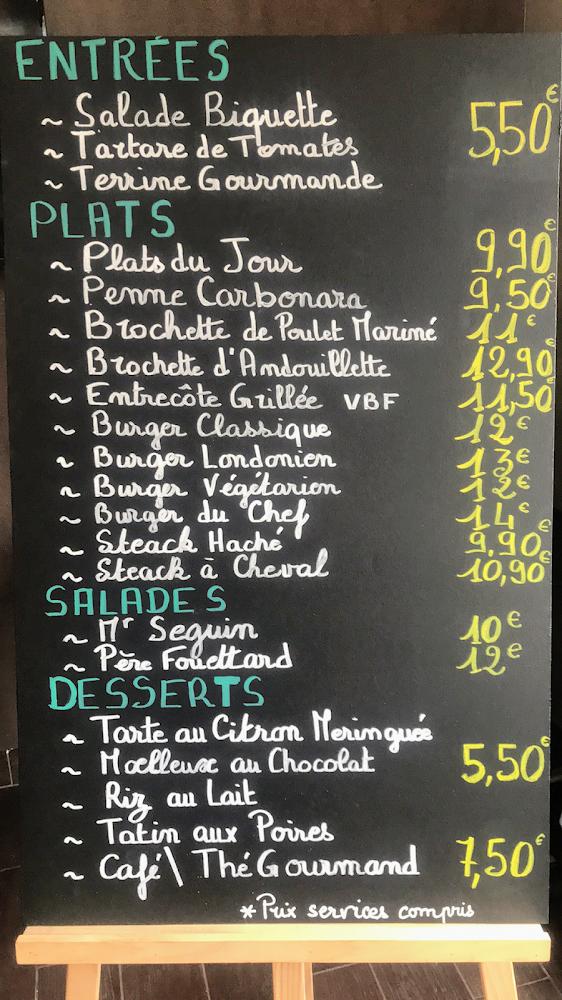 ENTRÉES
~ Salade Biquette
~ Tartare de Tomates 5,50€
~ Terrine Gourmande
PLATS
~ Plats du Jour 9,90€
~ Penne Carbonara 9,50€
~ Brochette de Poulet Mariné 11€
~ Brochette d'Andouillette 12,90€
~ Entrecôte Grillée VBF 11,50€
~ Burger Classique 12€
~ Burger Londonien 13€
~ Burger Végétarien 12€
~ Burger du Chef 14€
~ Steack Haché 9,90€
~ Steack à Cheval 10,90€
SALADES
~ Mr Seguin 10€
~ Père Fouettard 12€
DESSERTS
~ Tarte au Citron Meringuée
~ Moelleux au Chocolat 5,50€
~ Riz au Lait
~ Tatin aux Poires
~ Café\ Thé Gourmand 7,50€
*Prix services compris